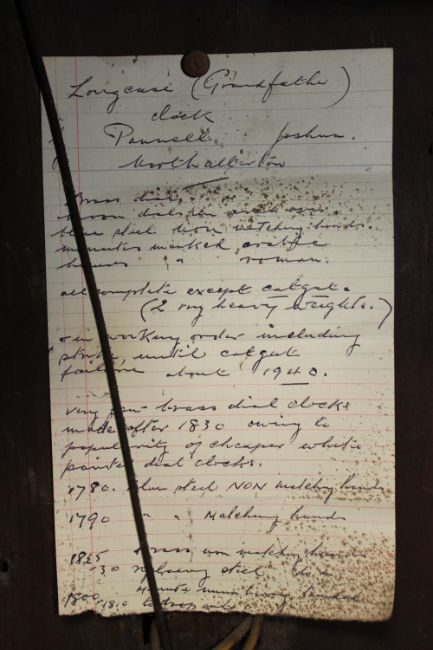 Longcase (Grandfather)
clock
by Pannell, Joshua.
of Northallerton
Brass dial,
moon dial in arch over
blue steel non matching hands.
minutes marked arabic
hours " roman.
all complete except catgut.
(2 very heavy weights.)
in working order including
strike, until catgut
failure about 1940.
very few brass dial clocks
made after 1830 owing to
popularity of cheaper white
painted dial clocks.
1780. blue steel NON matching hands
1790 " " Matching hands
1825 Brass non matching hands
30 replacing steel
1800 minute
1810